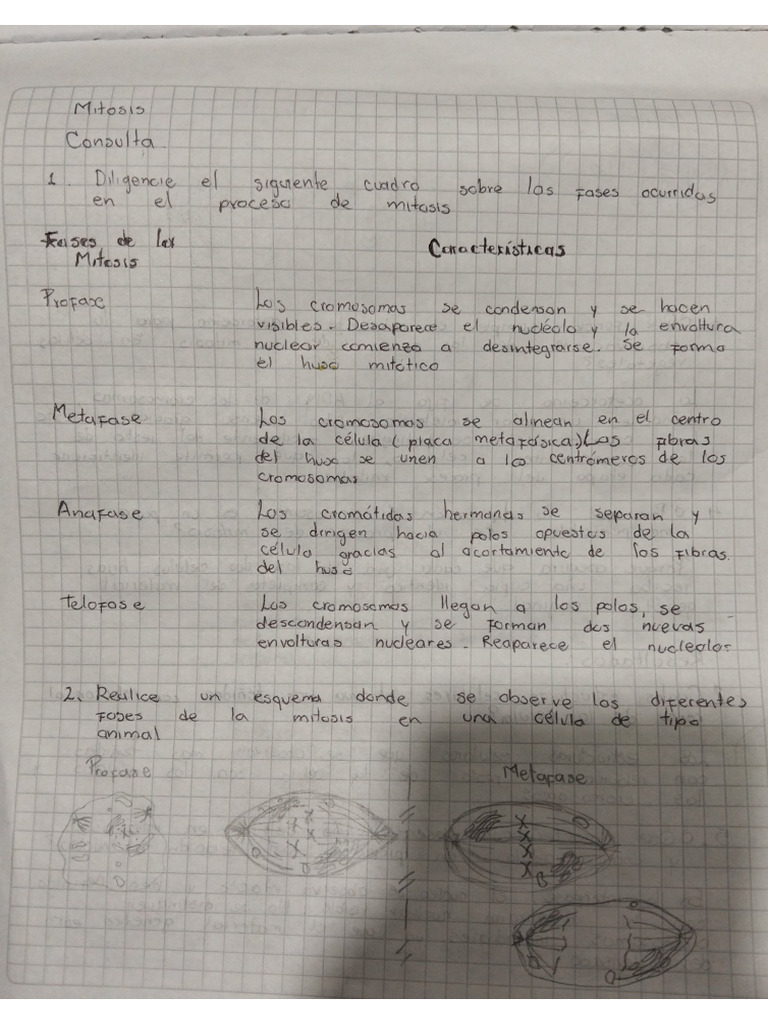 Mitosis
Consulta.
1. Diligencie el siguiente cuadro sobre las fases ocurridas
en el proceso de mitosis
Fases de las Características
Mitosis
Profase Los cromosomas se condensan y se hacen
visibles. Desaparece el nucléolo y la envoltura
nuclear comienza a desintegrarse. Se forma
el huso mitótico
Metafase Los cromosomas se alinean en el centro
de la célula (placa metafásica) Las fibras
del huso se unen a lo centrómeros de los
cromosomas
Anafase Las cromátidas hermanas se separan y
se dirigen hacia polos opuestos de la
célula gracias al acortamiento de los fibras.
del huso
Telofase Los cromosomas llegan a los polos, se
descondensan y se forman dos nuevas
envolturas nucleares. Reaparece el nucleolo.
2. Realice un esquema donde se observe las diferentes
fases de la mitosis en una célula de tipo
animal
Profase Metafase